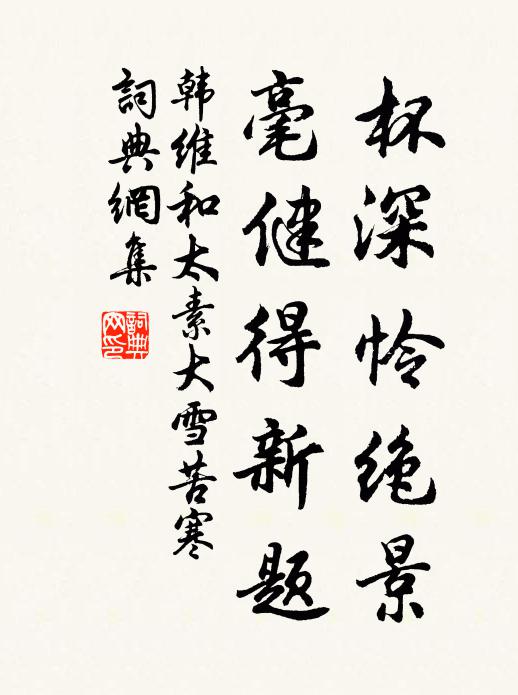 杯深怜绝景
毫健得新题
韩维和太素大雪苦寒
詞典網集
詞典
网印